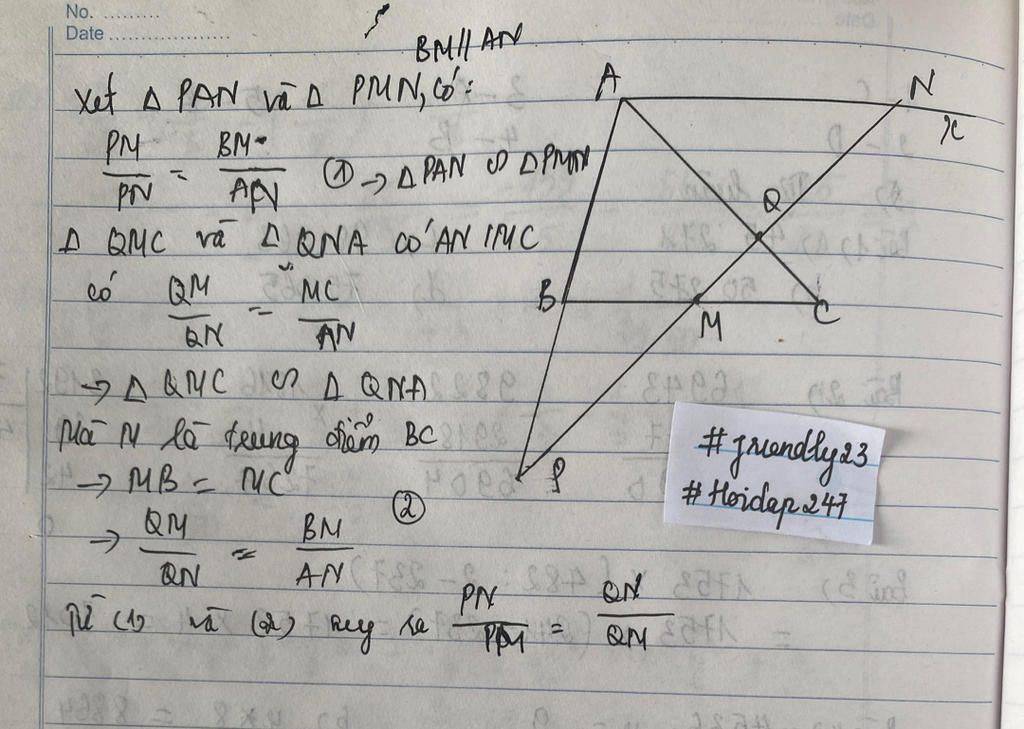 No. .........
Date ...................
BM // AN
Xét Δ PAN và Δ PMN, có:
PM/PN = BM/AN (1) → Δ PAN ∽ Δ PMN
Δ QMC và Δ QNA có AN // MC
có QM/QN = MC/AN
→ Δ QMC ∽ Δ QNA
Mà M là trung điểm BC
→ MB = MC
→ QM/QN = BM/AN (2)
Từ (1) và (2) suy ra PN/PM = QN/QM
A
N
x
Q
B
M
C
P
#friendly23
#Hoidap247